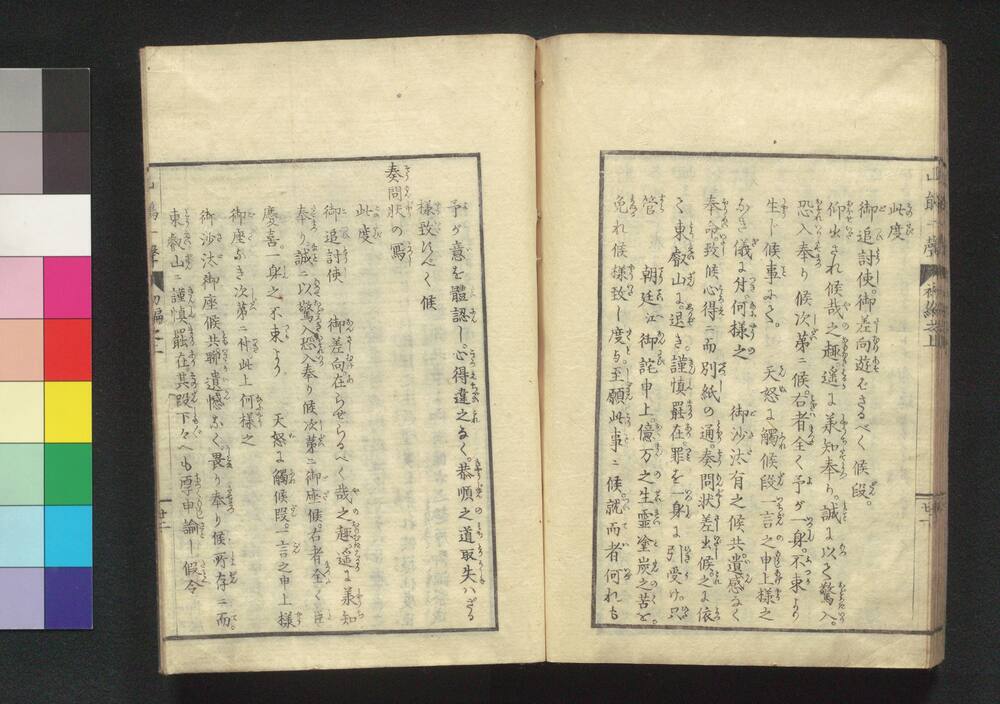 此度
御追討使。御差向遊をさるべく候段。
仰出され候哉之趣遥に承知奉り。誠に以く驚入。
恐入奉り候次第ニ候。右者全く予が一身。不束より
生じ候事にく。天怒に觸候段一言之申上様之
なき儀に付。何様之御沙汰有之候共。遺感なく
奉命致候心得ニ而別紙の通。奏問状差出候。之に依
く東叡山に。退き。謹慎罷在。罪を一身に引受け。只
管朝廷江御詫申上。億万之生霊塗炭之苦を。
免れ候様致し度与。至願此事ニ候就而者何れも
予が意を體認し。心得違之なく。恭順之道取失ハざる
様致べく候
奏問状の寫
此度
御追討使御差向在らせらるべく哉之趣遥に承知
奉り誠ニ以驚入恐入奉り候次第ニ御座候。右者全く臣
慶喜。一身之不束より天怒に觸候段。一言之申上様
御座なき次第ニ付此上何様之
御沙汰御座候共聊遺憾なく。畏り奉り候所存ニ而
東叡山ニ謹慎罷在其段下々へも厚申論し假令